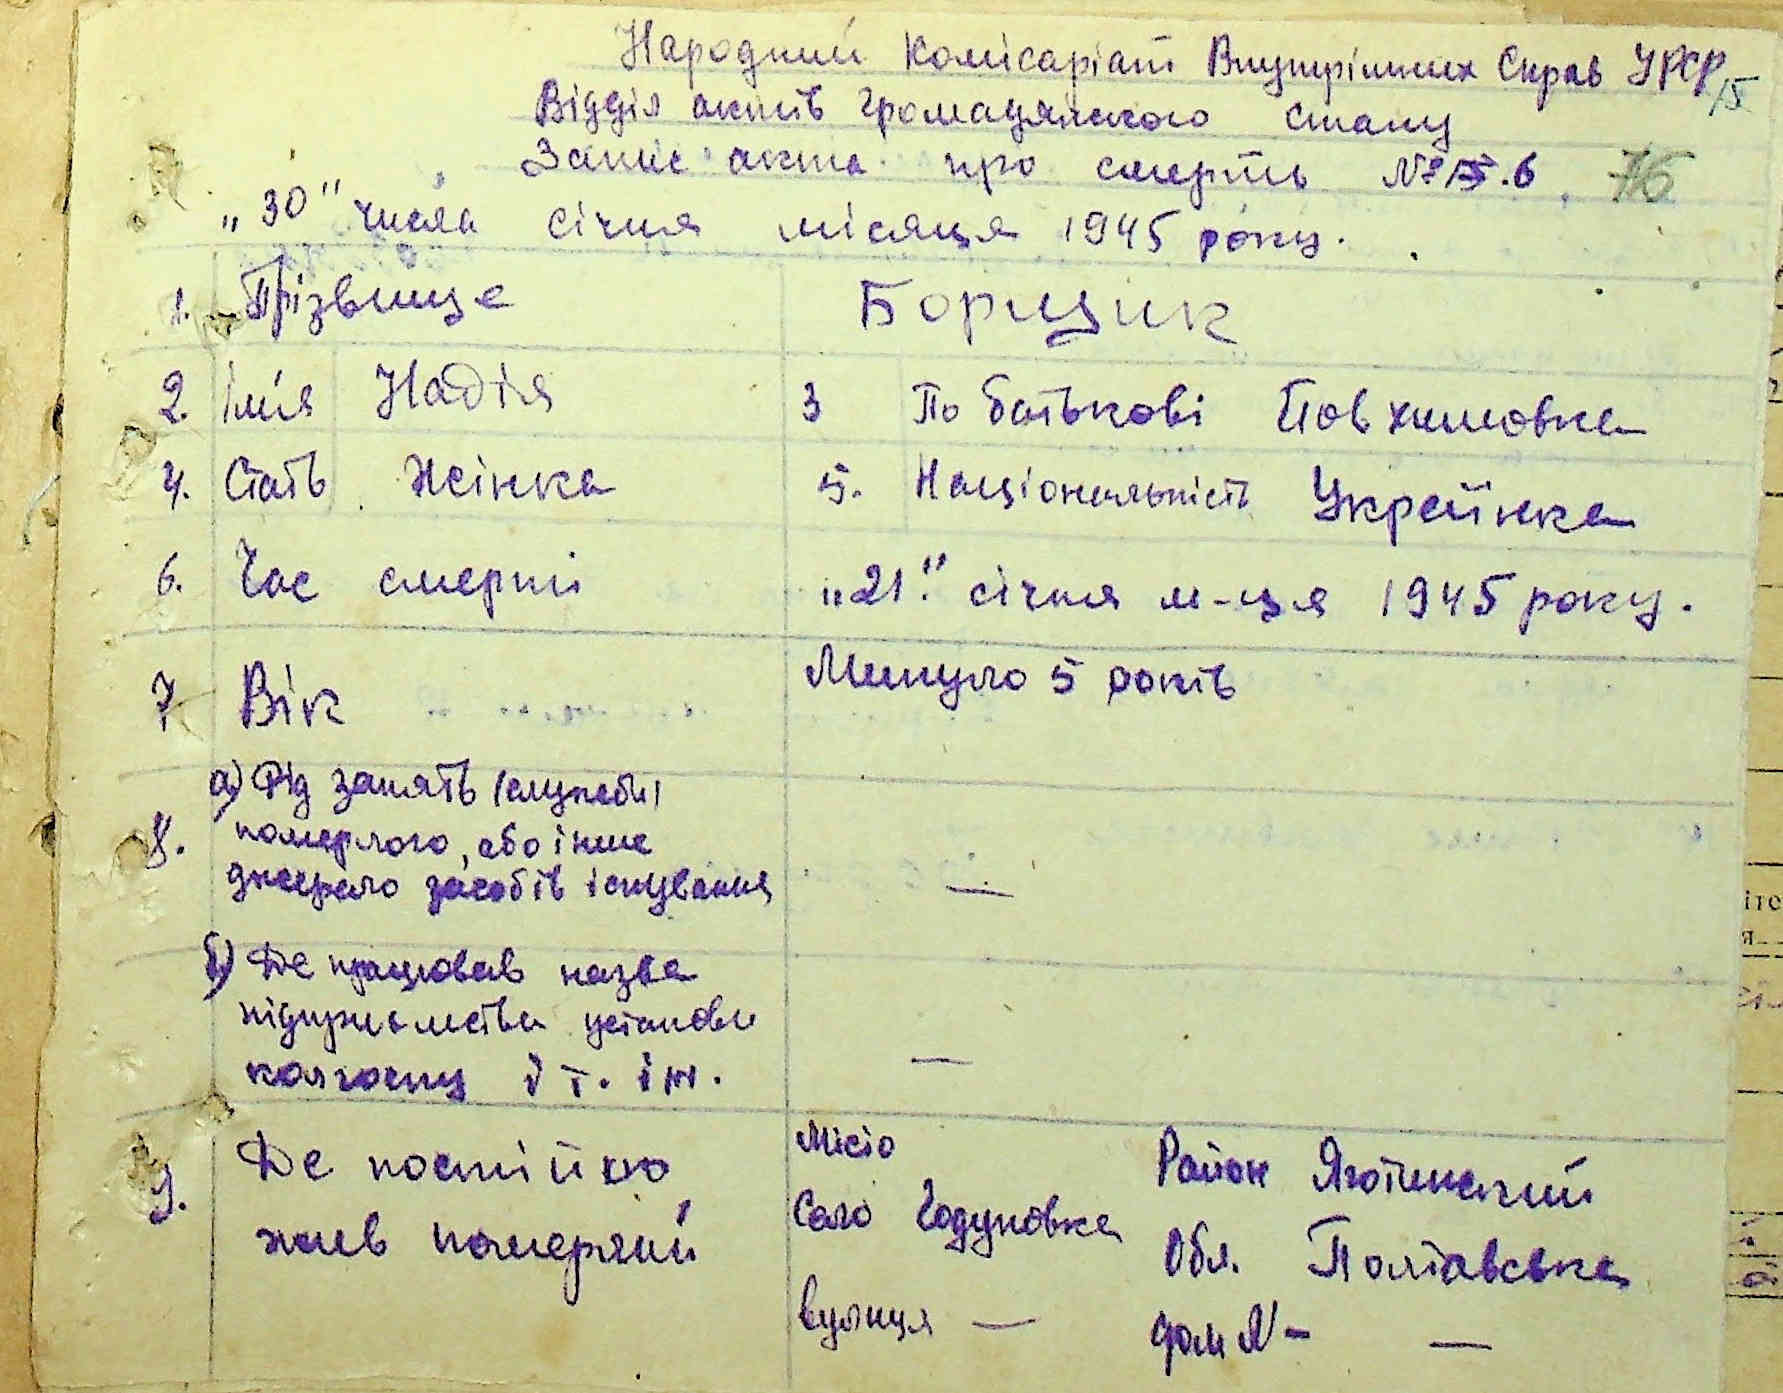 Народний Комісаріат Внутрішних Справ УРСР
15
Відділ актів громадянського стану
Запис акта про смерть № 6
76
„30" числа січня місяця 1945 року.
1. Прізвище Борщик
2. Ім'я Надія 3 По батькові Йовхимовка
4. Стать Жінка 5. Національність Украйінка
6. Час смерті „21" січня м-ця 1945 року.
7 Вік Минуло 5 років
8. а) Рід занять (служби)
померлого, або інше
джерело засобів існування —
б) Де працював назва
підприємства установи
колгоспу і т. ін. —
9. Де постійно
жив померлий
Місто Район Яготинський
Село Годуновка Обл. Полтавська
вулиця — дом № - —